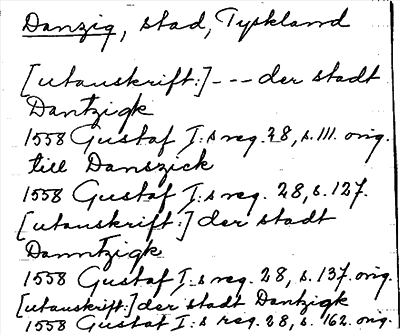 Danzig, stad, Tyskland
[utanskrift:] --- der stadt
Dantzigk
1558 Gustaf I:s reg. 28, s. 111. orig.
till Danszick
1558 Gustaf I:s reg. 28, s. 127.
[utanskrift:] der stadt
Danntzigk
1558 Gustaf I:s reg. 28, s. 137. orig.
[utanskrift:] der stadt Dantzigk
1558 Gustaf I:s reg. 28, s. 162. orig.